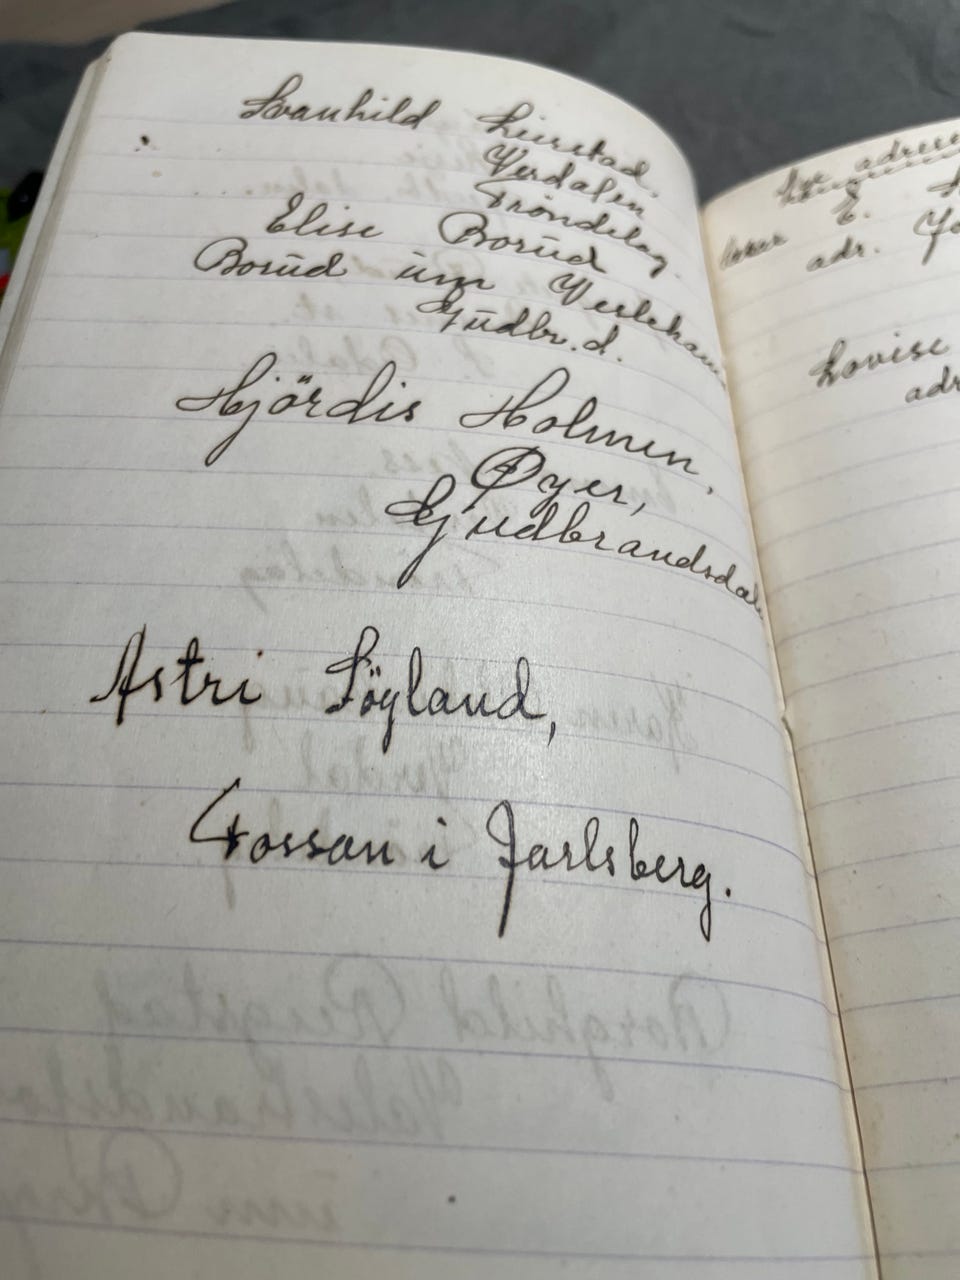 Svanhild Leirstad.
Verdalen
Tröndelag.
Elise Borud
Borud um Vestehaun
Gudbr.d.
Hjördis Holmen,
Øyer,
Gudbrandsdal
Astri Löyland,
Fossan i Jarlsberg.
adresse
E.
adr.
Lovise
adr